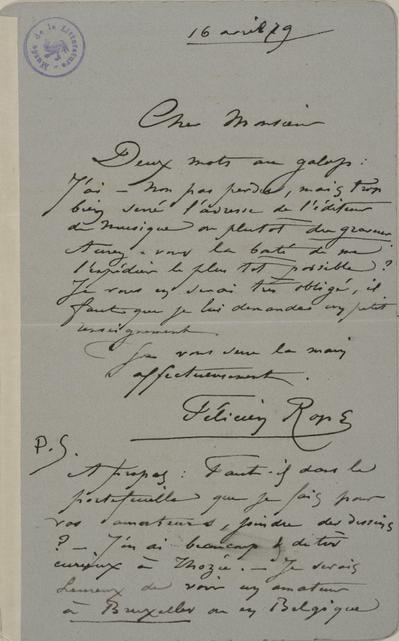 Musée de la Littérature
16 avril 79
Cher Monsieur
Deux mots au galop :
J'ai – non pas perdu, mais trop
bien serré l'adresse de l'éditeur
de musique ou plutôt du graveur
Aurez-vous la bonté de me
l'expédier le plus tôt possible ?
Je vous en serai très obligé, il
faut que je lui demande un petit
renseignement.
Je vous serre la main
affectueusement.
Félicien Rops
P.S.
A propos : Faut-il dans le
portefeuille que je fais pour
vos amateurs, joindre des dessins
? – J'en ai beaucoup & de très
curieux à Thozée. – Je serais
heureux de voir un amateur
à Bruxelles ou en Belgique